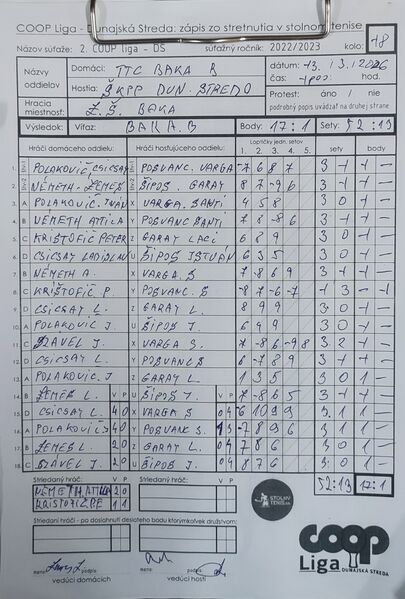 COOP Liga - Dunajská Streda: zápis zo stretnutia v stolnom tenise
Názov súťaže: 2. COOP liga - DS súťažný ročník: 2022/2023 kolo: 18
Názvy oddielov Domáci: TTC BAKA B dátum: 13.
Hostia: ŠKPP DUN. STREDO čas:
Hracia miestnosť Z.Š. BAKA Protest: áno / nie
podrobný popis uvádzať na druhej strane
Výsledok: Víťaz: BAKA B Body: 17:1 Sety: 52:13
Hráči domáceho oddielu: Hráči hosťujúceho oddielu: Loptičky jedn. setov 1. 2. 3. 4. 5. sety body
1. POLAKOVIČ CSICSAY POSVANC. VARGA -7 6 8 7 3 1 1 -
2. NÉMETH - ZEMES ŠIPOS GARAY 8 7 -9 6 3 1 1 -
3. A POLAKOVIČ IVÁN X VARGA SANTI 4 5 8 3 0 1 -
4. B NÉMETH ATTILA Y POSVANC SANTI 7 8 -8 6 3 1 1 -
5. C KRIŠTOFIČ PETER Z GARAY LACI 6 8 9 3 0 1 -
6. D CSICSAY LADISLAV U ŠIPOS IŠTVÁN 6 3 5 3 0 1 -
7. B NÉMETH A. X VARGA S. 7 -8 6 9 3 1 1 -
8. C KRIŠTOFIČ P. Y POSVANC. S -8 7 -6 -7 1 3 - 1
9. D CSICSAY L. Z GARAY L. 8 9 9 3 0 1 -
10. A POLAKOVIC J U ŠIPOS J. 6 4 9 3 0 1 -
11. C SLÁVEL J. X VARGA S. 7 -8 6 -9 8 3 2 1 -
12. D CSICSAY L. Y POSVANC S 6 -7 8 9 3 1 1 -
13. A POLAKOVIC. J Z GARAY L. 1 3 5 3 0 1 -
14. B ZEMES L. V P U ŠIPOS J. V P 7 -8 6 5 3 1 1 -
15. D CSICSAY L. 4 0 X VARGA S 0 4 -6 10 9 9 3 1 1 -
16. A POLAKOVIČ J 4 0 Y POSVANC S. 1 3 -7 8 9 6 3 1 1 -
17. B ZEMES L. 2 0 Z GARAY L. 0 4 7 8 6 3 0 1 -
18. C SLÁVEL J. 2 0 U ŠIPOS J 0 4 8 7 6 3 0 1 -
Striedaný hráč: V P Striedaný hráč: V P 52:13 17:1
NÉMETH ATTILA 2 0
KRISTOFIČ P 1 1
STOLNÝ TENIS.SK
Striedaní hráči - po dosiahnutí desiateho bodu ktorýmkoľvek družstvom:
meno podpis meno podpis
vedúci domácich vedúci hostí
coop
Liga DUNAJSKÁ STREDA